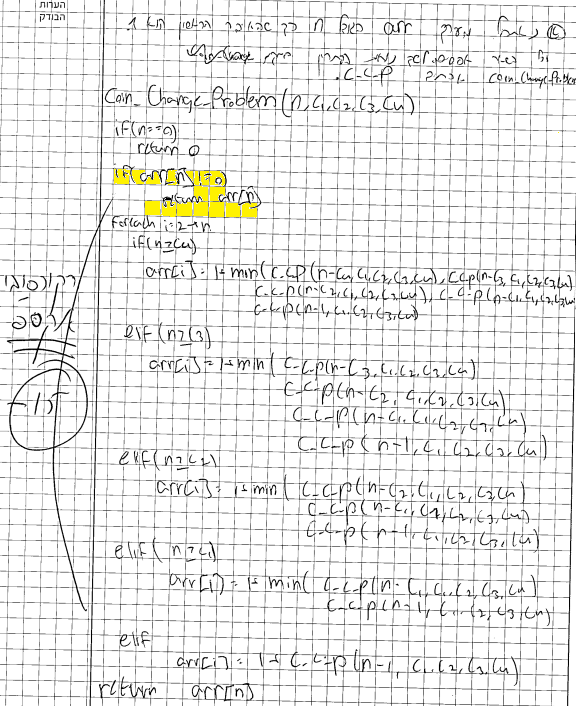 הערות
הבודק
נאתחל מערך arr בגודל n כך שהאיבר הראשון הוא 1
Coin_Change_Problem C-C-P
Coin_Change_Problem(n, C1, C2, C3, C4)
if(n==0)
return 0
if(arr[n] != 0)
return arr[n]
foreach i=2→n
if(n≥C4)
arr[i]= 1+min( C-C-P(n-C4, C1, C2, C3, C4), C-C-P(n-C3, C1, C2, C3, C4)
C-C-P(n-C2, C1, C2, C3, C4), C-C-P(n-C1, C1, C2, C3, C4)
C-C-P(n-1, C1, C2, C3, C4)
elif(n≥C3)
arr[i]=1+min( C-C-P(n-C3, C1, C2, C3, C4)
C-C-P(n-C2, C1, C2, C3, C4)
C-C-P(n-C1, C1, C2, C3, C4)
C-C-P(n-1, C1, C2, C3, C4)
elif(n≥C2)
arr[i]= 1+min( C-C-P(n-C2, C1, C2, C3, C4)
C-C-P(n-C1, C1, C2, C3, C4)
C-C-P(n-1, C1, C2, C3, C4)
elif(n≥C1)
arr[i]= 1+min( C-C-P(n-C1, C1, C2, C3, C4)
C-C-P(n-1, C1, C2, C3, C4)
elif
arr[i]= 1+ C-C-P(n-1, C1, C2, C3, C4)
return arr[n]
רקורסיבי
-15